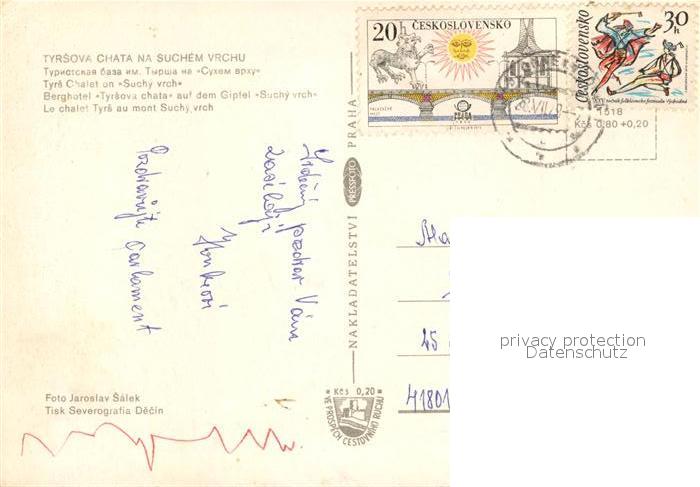 TYRŠOVA CHATA NA SUCHÉM VRCHU
Туристская база им. Тырша на «Сухем врху»
Tyrš Chalet on »Suchý vrch«
Berghotel »Tyršova chata« auf dem Gipfel »Suchý vrch«
Le chalet Tyrš au mont Suchý vrch
Srdečný pozdrav Vám
zasílají
Pozdravujte parlament
Foto Jaroslav Šálek
Tisk Severografia Děčín
NAKLADATELSTVÍ PRESSFOTO PRAHA
Kčs 0,20
VE PROSPĚCH CESTOVNÍHO RUCHU
20h ČESKOSLOVENSKO
PRAHA
Československo 30h
1618
Kčs 0,80 +0,20
45
41801
privacy protection
Datenschutz